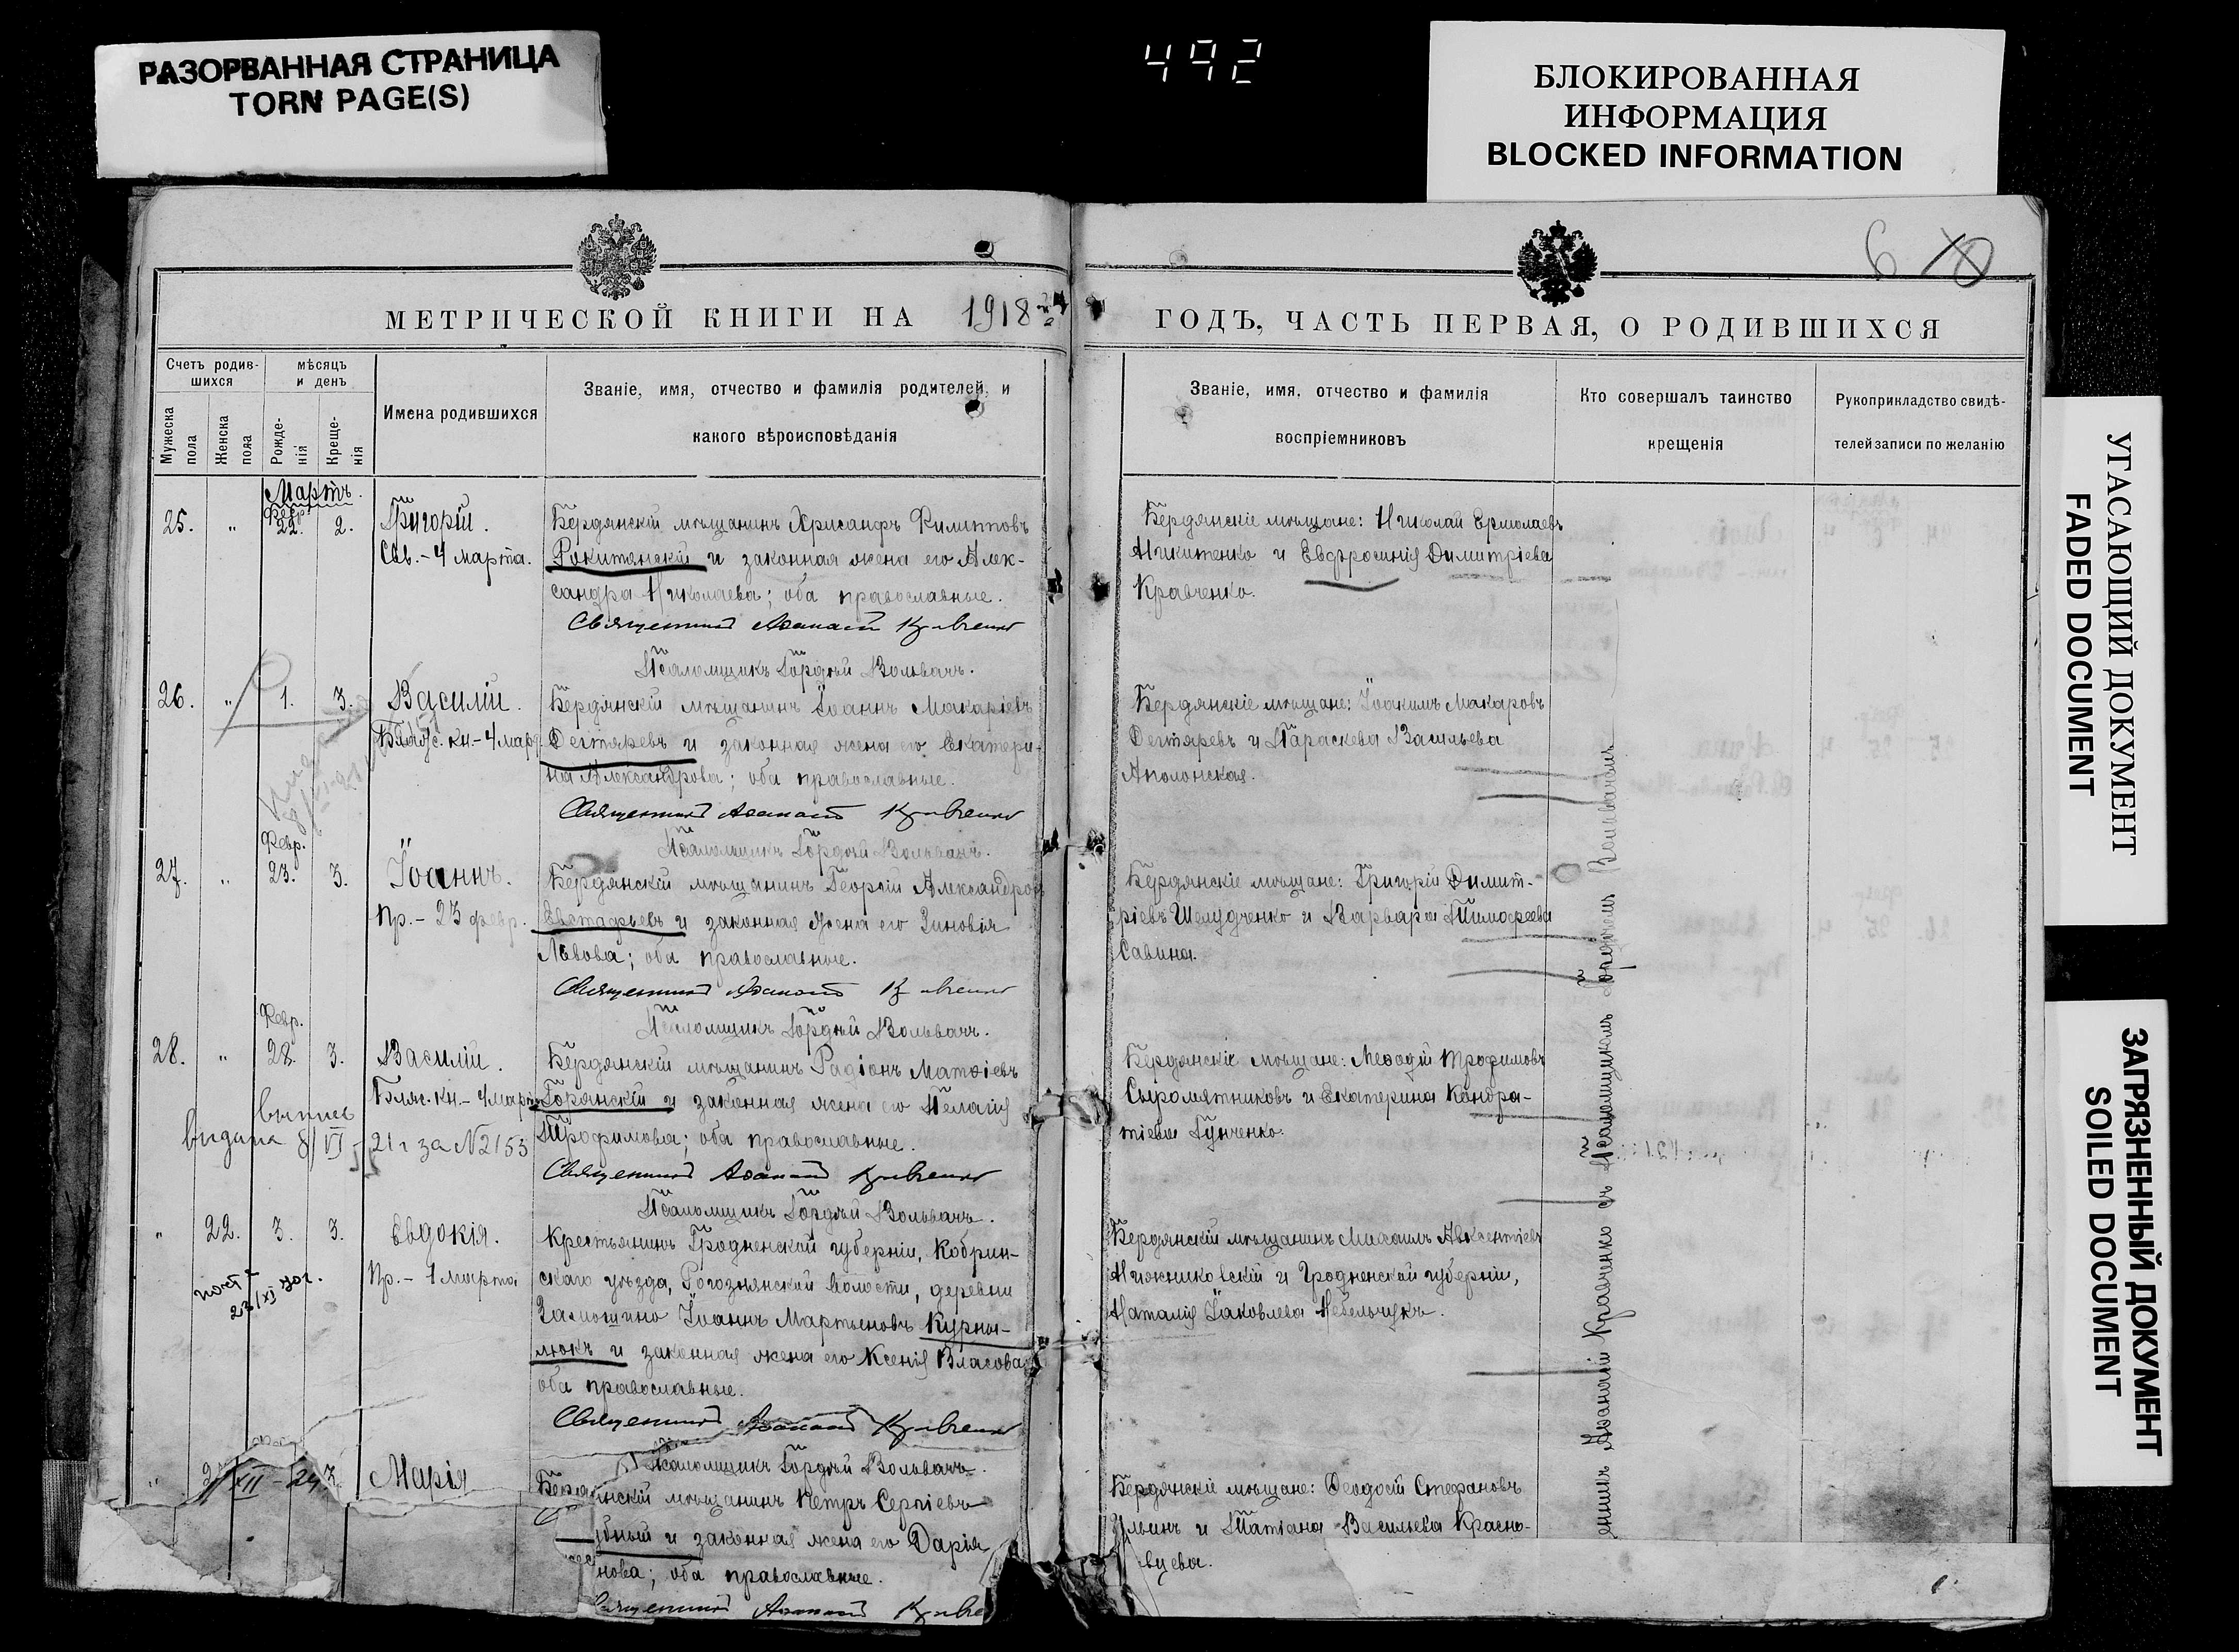 РАЗОРВАННАЯ СТРАНИЦА
TORN PAGE(S)
492
БЛОКИРОВАННАЯ
ИНФОРМАЦИЯ
BLOCKED INFORMATION
6
МЕТРИЧЕСКОЙ КНИГИ НА 1918
ГОДЪ, ЧАСТЬ ПЕРВАЯ, О РОДИВШИХСЯ
Счетъ родив-
шихся
мѣсяцъ
и день
Мужеска
пола
Женска
пола
Рожде-
нія
Креще-
нія
Имена родившихся
Званіе, имя, отчество и фамилія родителей, и
какого вѣроисповѣданія
Званіе, имя, отчество и фамилія
воспріемниковъ
Кто совершалъ таинство
крещенія
Рукоприкладство свидѣ-
телей записи по желанію
Мартъ.
Февр.
25. " 22. 2. Григорій.
Св. - 4 марта.
Бердянскій мѣщанинъ Хрисанфъ Филиповъ
Рокитянскій и законная жена его Алек-
сандра Николаева; оба православные.
Священникъ Аѳанасій Кравченко
Псаломщикъ Гордѣй Вольвачъ.
Бердянскіе мѣщане: Николай Ермолаевъ
Никитенко и Евфросинія Димитріева
Кравченко.
26. " 1. 3. Василій.
кн. - 4 мар.
Бердянскій мѣщанинъ Іоаннъ Макаріевъ
Дегтяревъ и законная жена его Екатери-
на Александрова; оба православные.
Священникъ Аѳанасій Кравченко
Псаломщикъ Гордѣй Вольвачъ.
Бердянскіе мѣщане: Іоакимъ Макаровъ
Дегтяревъ и Параскева Васильева
Аполонская.
Февр.
27. " 23. 3. Іоаннъ.
Пр. - 23 февр.
Бердянскій мѣщанинъ Георгій Александровъ
Евстафьевъ и законная жена его Зиновія
Львова; оба православные.
Священникъ Аѳанасій Кравченко
Псаломщикъ Гордѣй Вольвачъ.
Бердянскіе мѣщане: Григорій Димит-
ріевъ Шелудченко и Варвара Тимофеева
Савина.
Февр.
28. " 28. 3. Василій.
Блж. кн. - 4 мар
выпись
видана 8/VI - 21 г за N2153
Бердянскій мѣщанинъ Радіонъ Матѳіевъ
Горянскій и законная жена его Пелагія
Трофимова; оба православные.
Священникъ Аѳанасій Кравченко
Псаломщикъ Гордѣй Вольвачъ.
Бердянскіе мѣщане: Меѳодій Трофимовъ
Сыромятниковъ и Екатерина Кондра-
тіева Гунченко.
" 22. 3. 3. Евдокія.
Пр. - 1 марта
23/XI
Крестьянинъ Гродненской губерніи, Кобрин-
скаго уѣзда, Рогознянской волости, деревни
Залюшино Іоаннъ Мартыновъ Курны-
люкъ и законная жена его Ксенія Власова
оба православные.
Священникъ Аѳанасій Кравченко
Псаломщикъ Гордѣй Вольвачъ.
Бердянскій мѣщанинъ Михаилъ Авксентіевъ
Нижниковскій и Гродненской губерніи,
Наталія Іаковлева Небельчукъ.
" XII - 24 3. Марія
Бердянскій мѣщанинъ Петръ Сергіевъ
убный и законная жена его Дарія
нова; оба православные.
Священникъ Аѳанасій Кравче
Бердянскіе мѣщане: Ѳеодосій Стефановъ
Ильинъ и Татіана Васильева Красно-
вцева.
енникъ Аѳанасій Кравченко съ Псаломщикомъ Гордѣемъ Вольвачемъ
УГАСАЮЩИЙ ДОКУМЕНТ
FADED DOCUMENT
ЗАГРЯЗНЕННЫЙ ДОКУМЕНТ
SOILED DOCUMENT